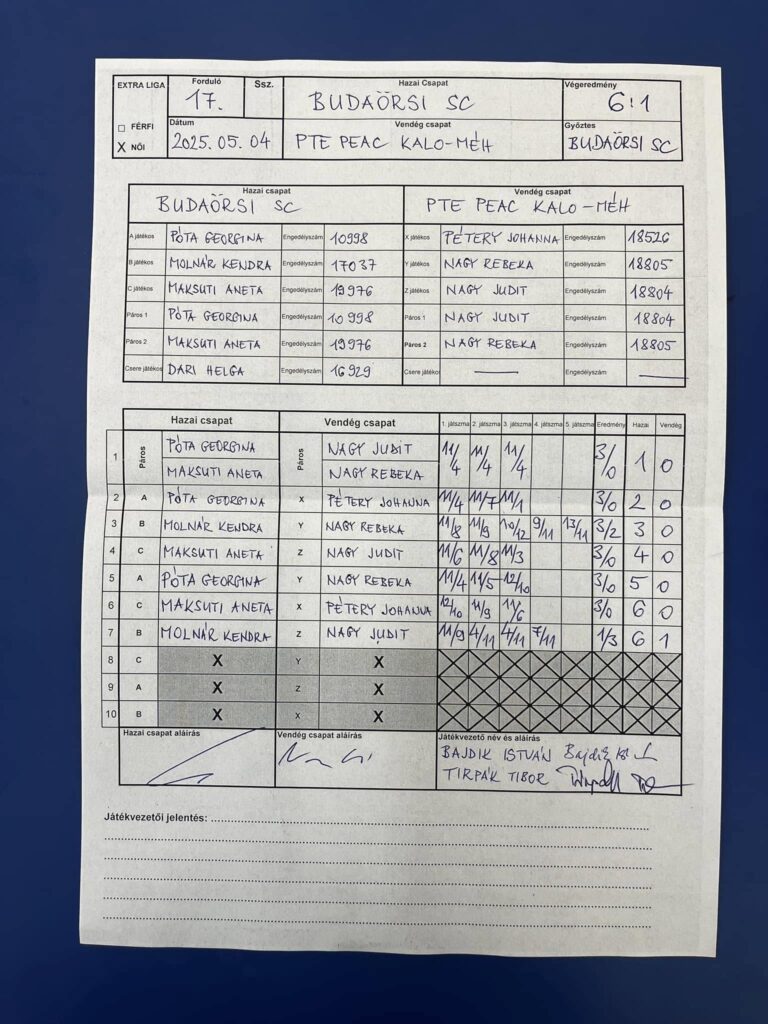 EXTRA LIGA Forduló Ssz. Hazai Csapat Végeredmény
17. BUDAÖRSI SC 6:1
□ FÉRFI Dátum Vendég csapat Győztes
X NŐI 2025.05.04 PTE PEAC KALO-MÉH BUDAÖRSI SC
Hazai csapat Vendég csapat
BUDAÖRSI SC PTE PEAC KALO-MÉH
A játékos PÓTA GEORGINA Engedélyszám 10998 X játékos PÉTERY JOHANNA Engedélyszám 18526
B játékos MOLNÁR KENDRA Engedélyszám 17037 Y játékos NAGY REBEKA Engedélyszám 18805
C játékos MAKSUTI ANETA Engedélyszám 19976 Z játékos NAGY JUDIT Engedélyszám 18804
Páros 1 PÓTA GEORGINA Engedélyszám 10998 Páros 1 NAGY JUDIT Engedélyszám 18804
Páros 2 MAKSUTI ANETA Engedélyszám 19976 Páros 2 NAGY REBEKA Engedélyszám 18805
Csere játékos DARI HELGA Engedélyszám 16929 Csere játékos — Engedélyszám —
Hazai csapat Vendég csapat 1. játszma 2. játszma 3. játszma 4. játszma 5. játszma Eredmény Hazai Vendég
1 Páros PÓTA GEORGINA Páros NAGY JUDIT 11/4 11/4 11/4 3/0 1 0
MAKSUTI ANETA NAGY REBEKA
2 A PÓTA GEORGINA X PÉTERY JOHANNA 11/4 11/7 11/1 3/0 2 0
3 B MOLNÁR KENDRA Y NAGY REBEKA 11/8 11/9 10/12 9/11 13/11 3/2 3 0
4 C MAKSUTI ANETA Z NAGY JUDIT 11/6 11/8 11/3 3/0 4 0
5 A PÓTA GEORGINA Y NAGY REBEKA 11/4 11/5 12/10 3/0 5 0
6 C MAKSUTI ANETA X PÉTERY JOHANNA 12/10 11/9 11/6 3/0 6 0
7 B MOLNÁR KENDRA Z NAGY JUDIT 11/9 4/11 4/11 7/11 1/3 6 1
8 C X Y X
9 A X Z X
10 B X X X
Hazai csapat aláírás Vendég csapat aláírás Játékvezető név és aláírás
BAJDIK ISTVÁN
TIRPÁK TIBOR
Játékvezetői jelentés: